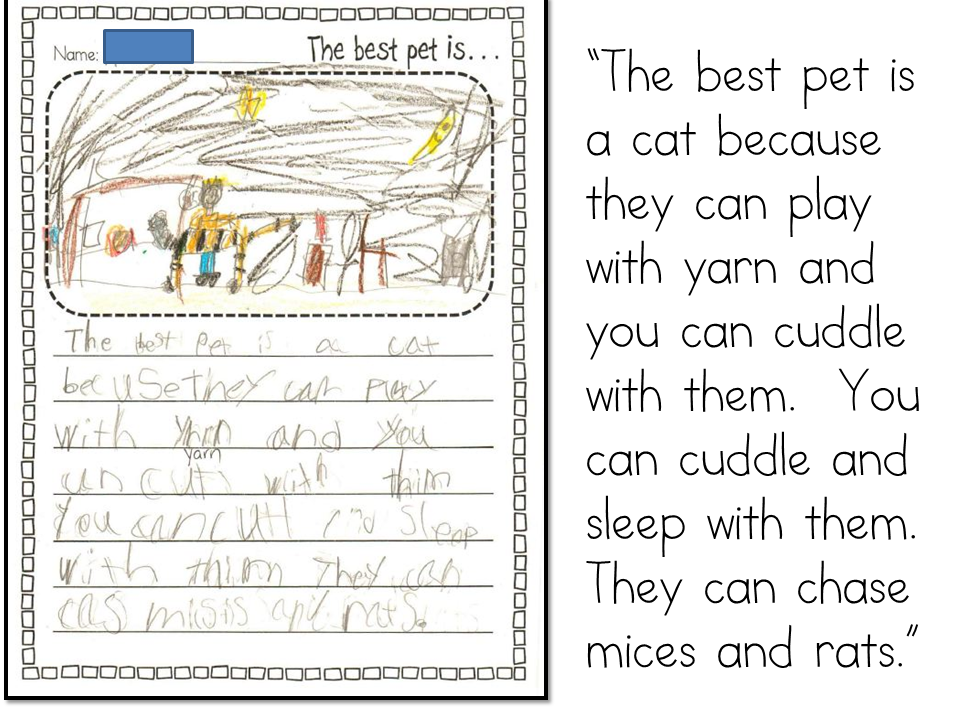 Name:
The best pet is...
The best pet is a cat
becuse they can play
with yarn and you
yarn
can cutl with thim
You can cutl and sleep
with thim They can
cas misis and rats.
“The best pet is
a cat because
they can play
with yarn and
you can cuddle
with them. You
can cuddle and
sleep with them.
They can chase
mices and rats.”